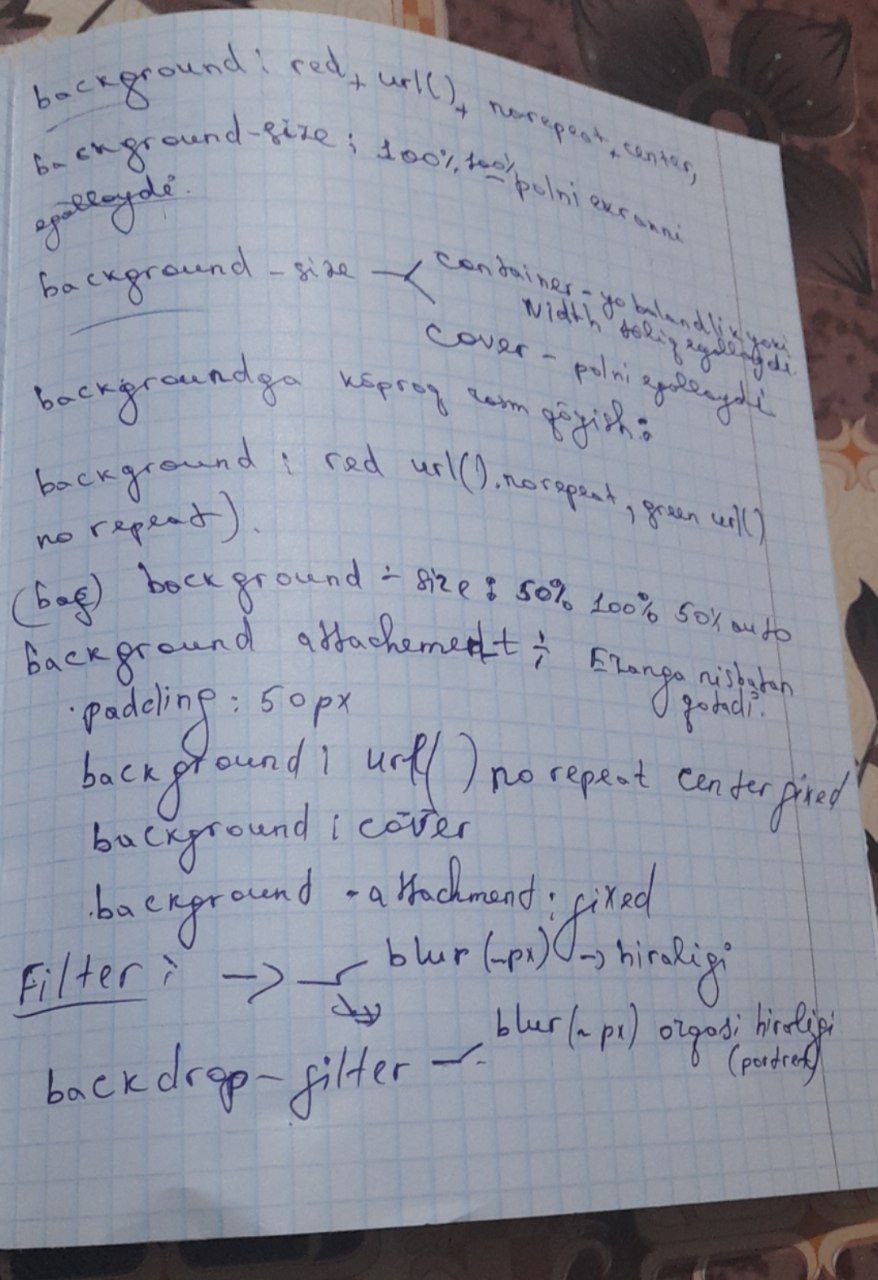 background : red + url() + norepeat + center,
background-size : 100%, 100% – polni ekranni
egallaydi.
background – size – container – yo balandlik yoki
width toliq egallaydi.
cover – polni egallaydi
backgroundga kōproq rasm qōyish :
background : red url(), norepeat, green url()
no repeat).
(bag) background – size : 50% 100% 50% auto
background attachement : Ekranga nisbatan
qotadi.
padding : 50px
background : url() no repeat center fixed
background : cover
background - attachment : fixed
Filter : -> blur (~px) -> hiraligi
backdrop – filter – blur (~ px) orqasi hiraligi
(portret)